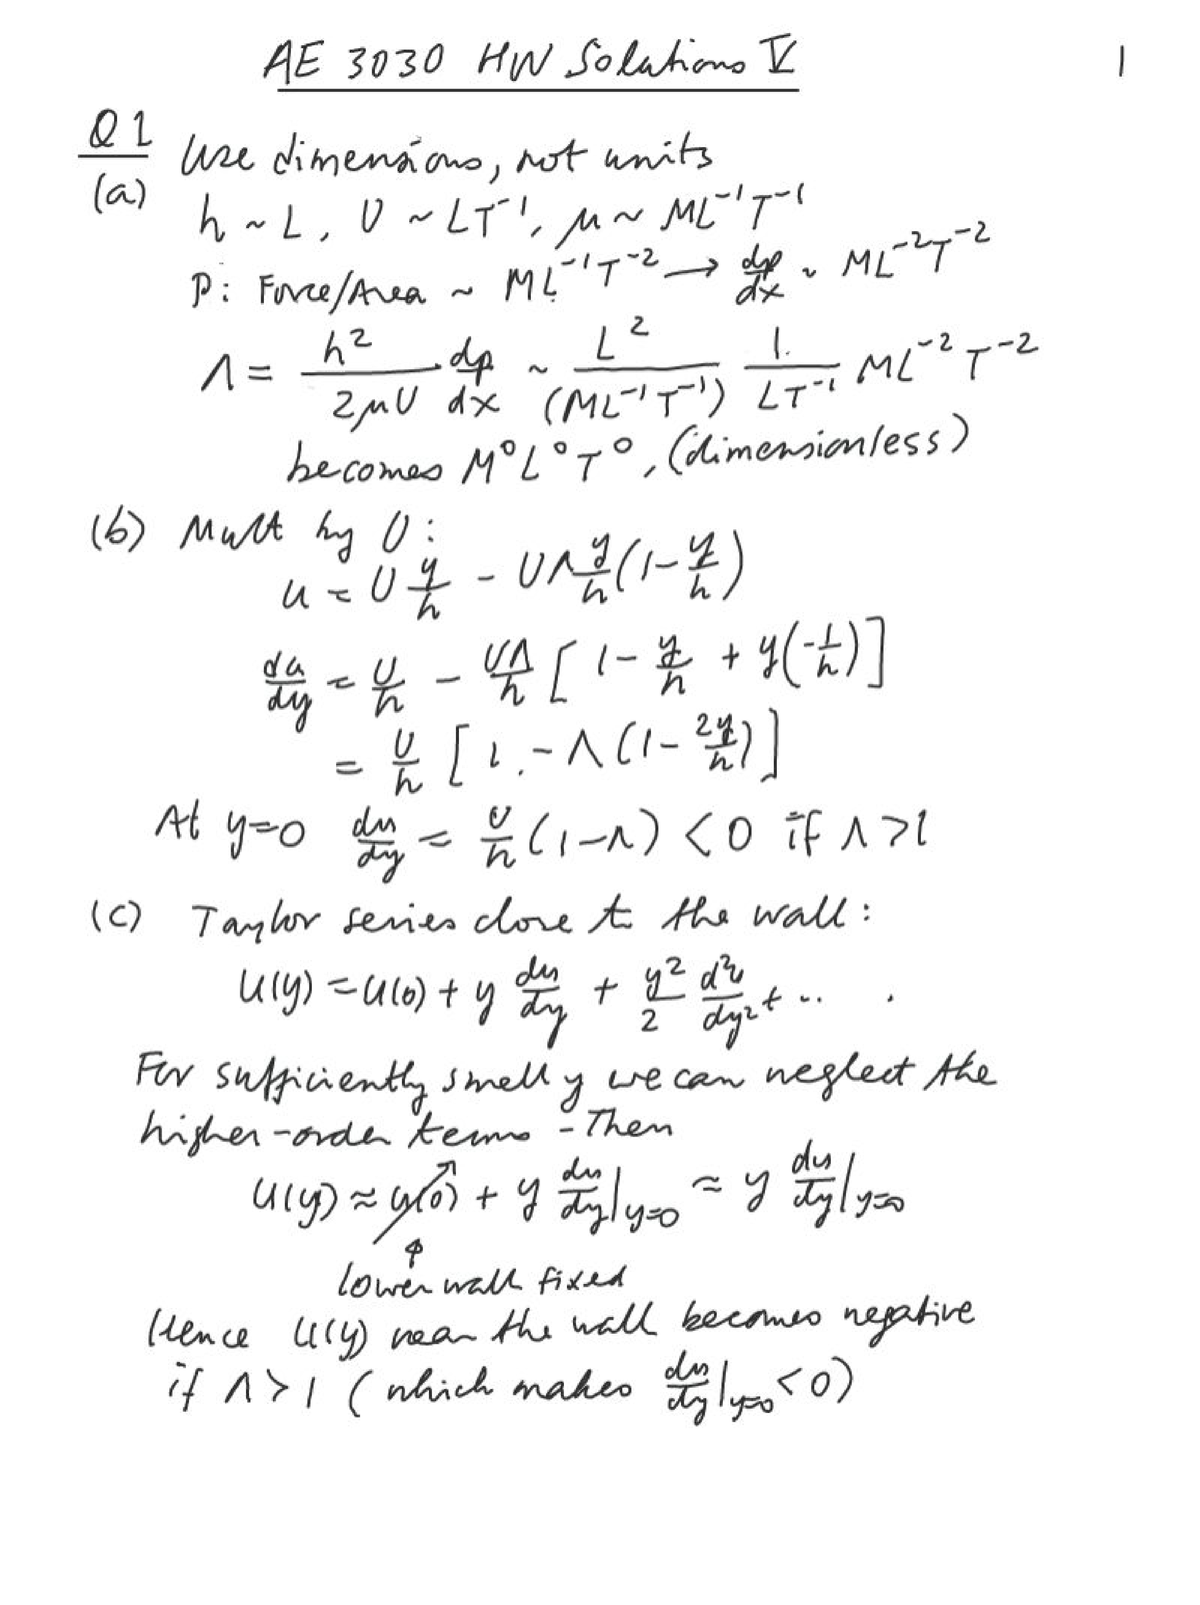 AE 3030 HW Solutions V 1
Q1 Use dimensions, not units
(a) h ~ L, U ~ LT⁻¹, μ ~ ML⁻¹T⁻¹
p: Force/Area ~ ML⁻¹T⁻² → dp/dx ~ ML⁻²T⁻²
Λ = h²/(2μU) dp/dx ~ L²/(ML⁻¹T⁻¹) 1/(LT⁻¹) ML⁻²T⁻²
becomes M⁰L⁰T⁰, (dimensionless)
(b) Mult by U:
u = U y/h - UΛ y/h (1 - y/h)
du/dy = U/h - UΛ/h [1 - y/h + y(-1/h)]
= U/h [1 - Λ(1 - 2y/h)]
At y=0 du/dy = U/h (1-Λ) < 0 if Λ > 1
(c) Taylor series close to the wall:
u(y) = u(0) + y du/dy + y²/2 d²u/dy² + ...
For sufficiently small y we can neglect the
higher-order terms - Then
u(y) ≈ u(0) + y du/dy|y=0 ≈ y du/dy|y=0
lower wall fixed
Hence u(y) near the wall becomes negative
if Λ > 1 (which makes du/dy|y=0 < 0)